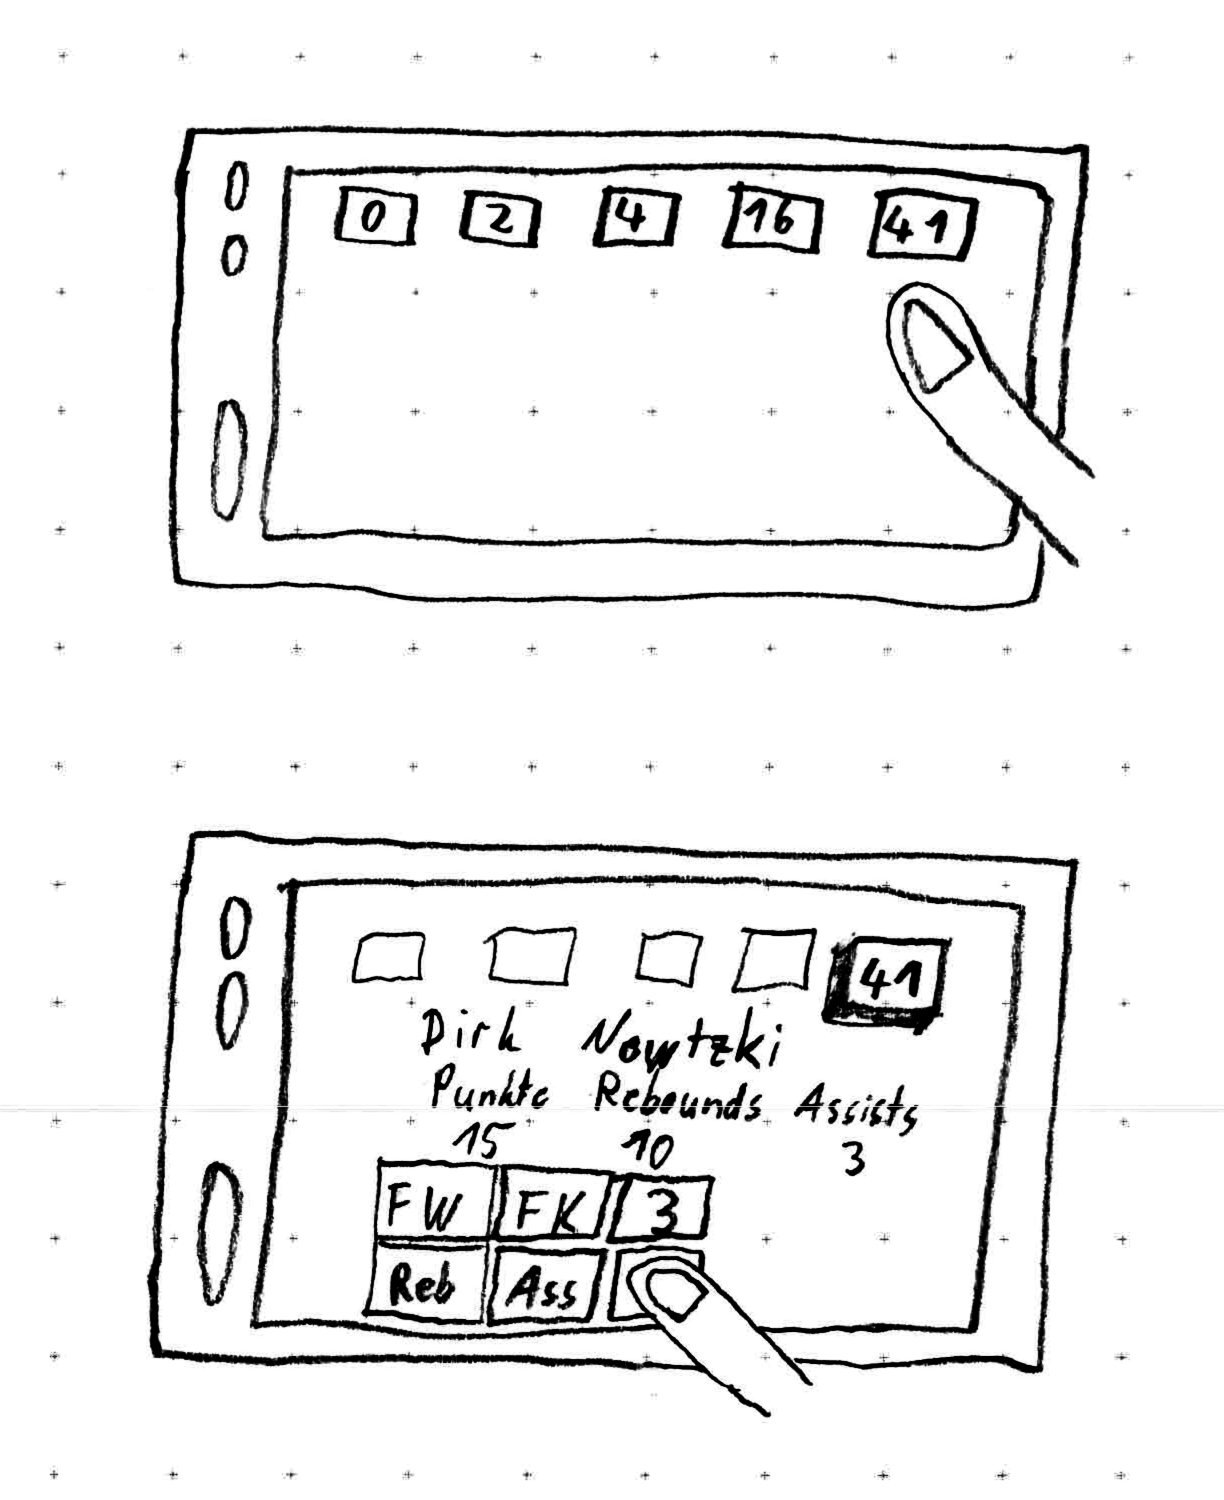 0 2 4 16 41
41
Dirk Nowtzki
Punkte Rebounds Assists
15 10 3
FW FK 3
Reb Ass